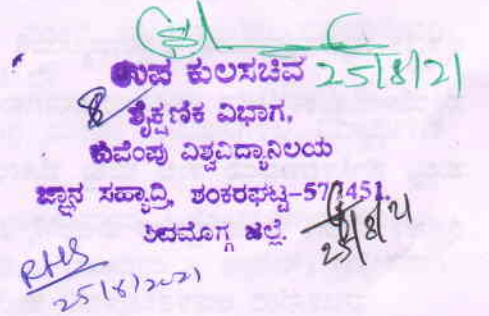 ಉಪ ಕುಲಸಚಿವ 25/8/21
ಶೈಕ್ಷಣಿಕ ವಿಭಾಗ,
ಕುವೆಂಪು ವಿಶ್ವವಿದ್ಯಾನಿಲಯ
ಜ್ಞಾನ ಸಹ್ಯಾದ್ರಿ, ಶಂಕರಘಟ್ಟ-577451.
ಶಿವಮೊಗ್ಗ ಜಿಲ್ಲೆ. 25/8/21
25/8/2021